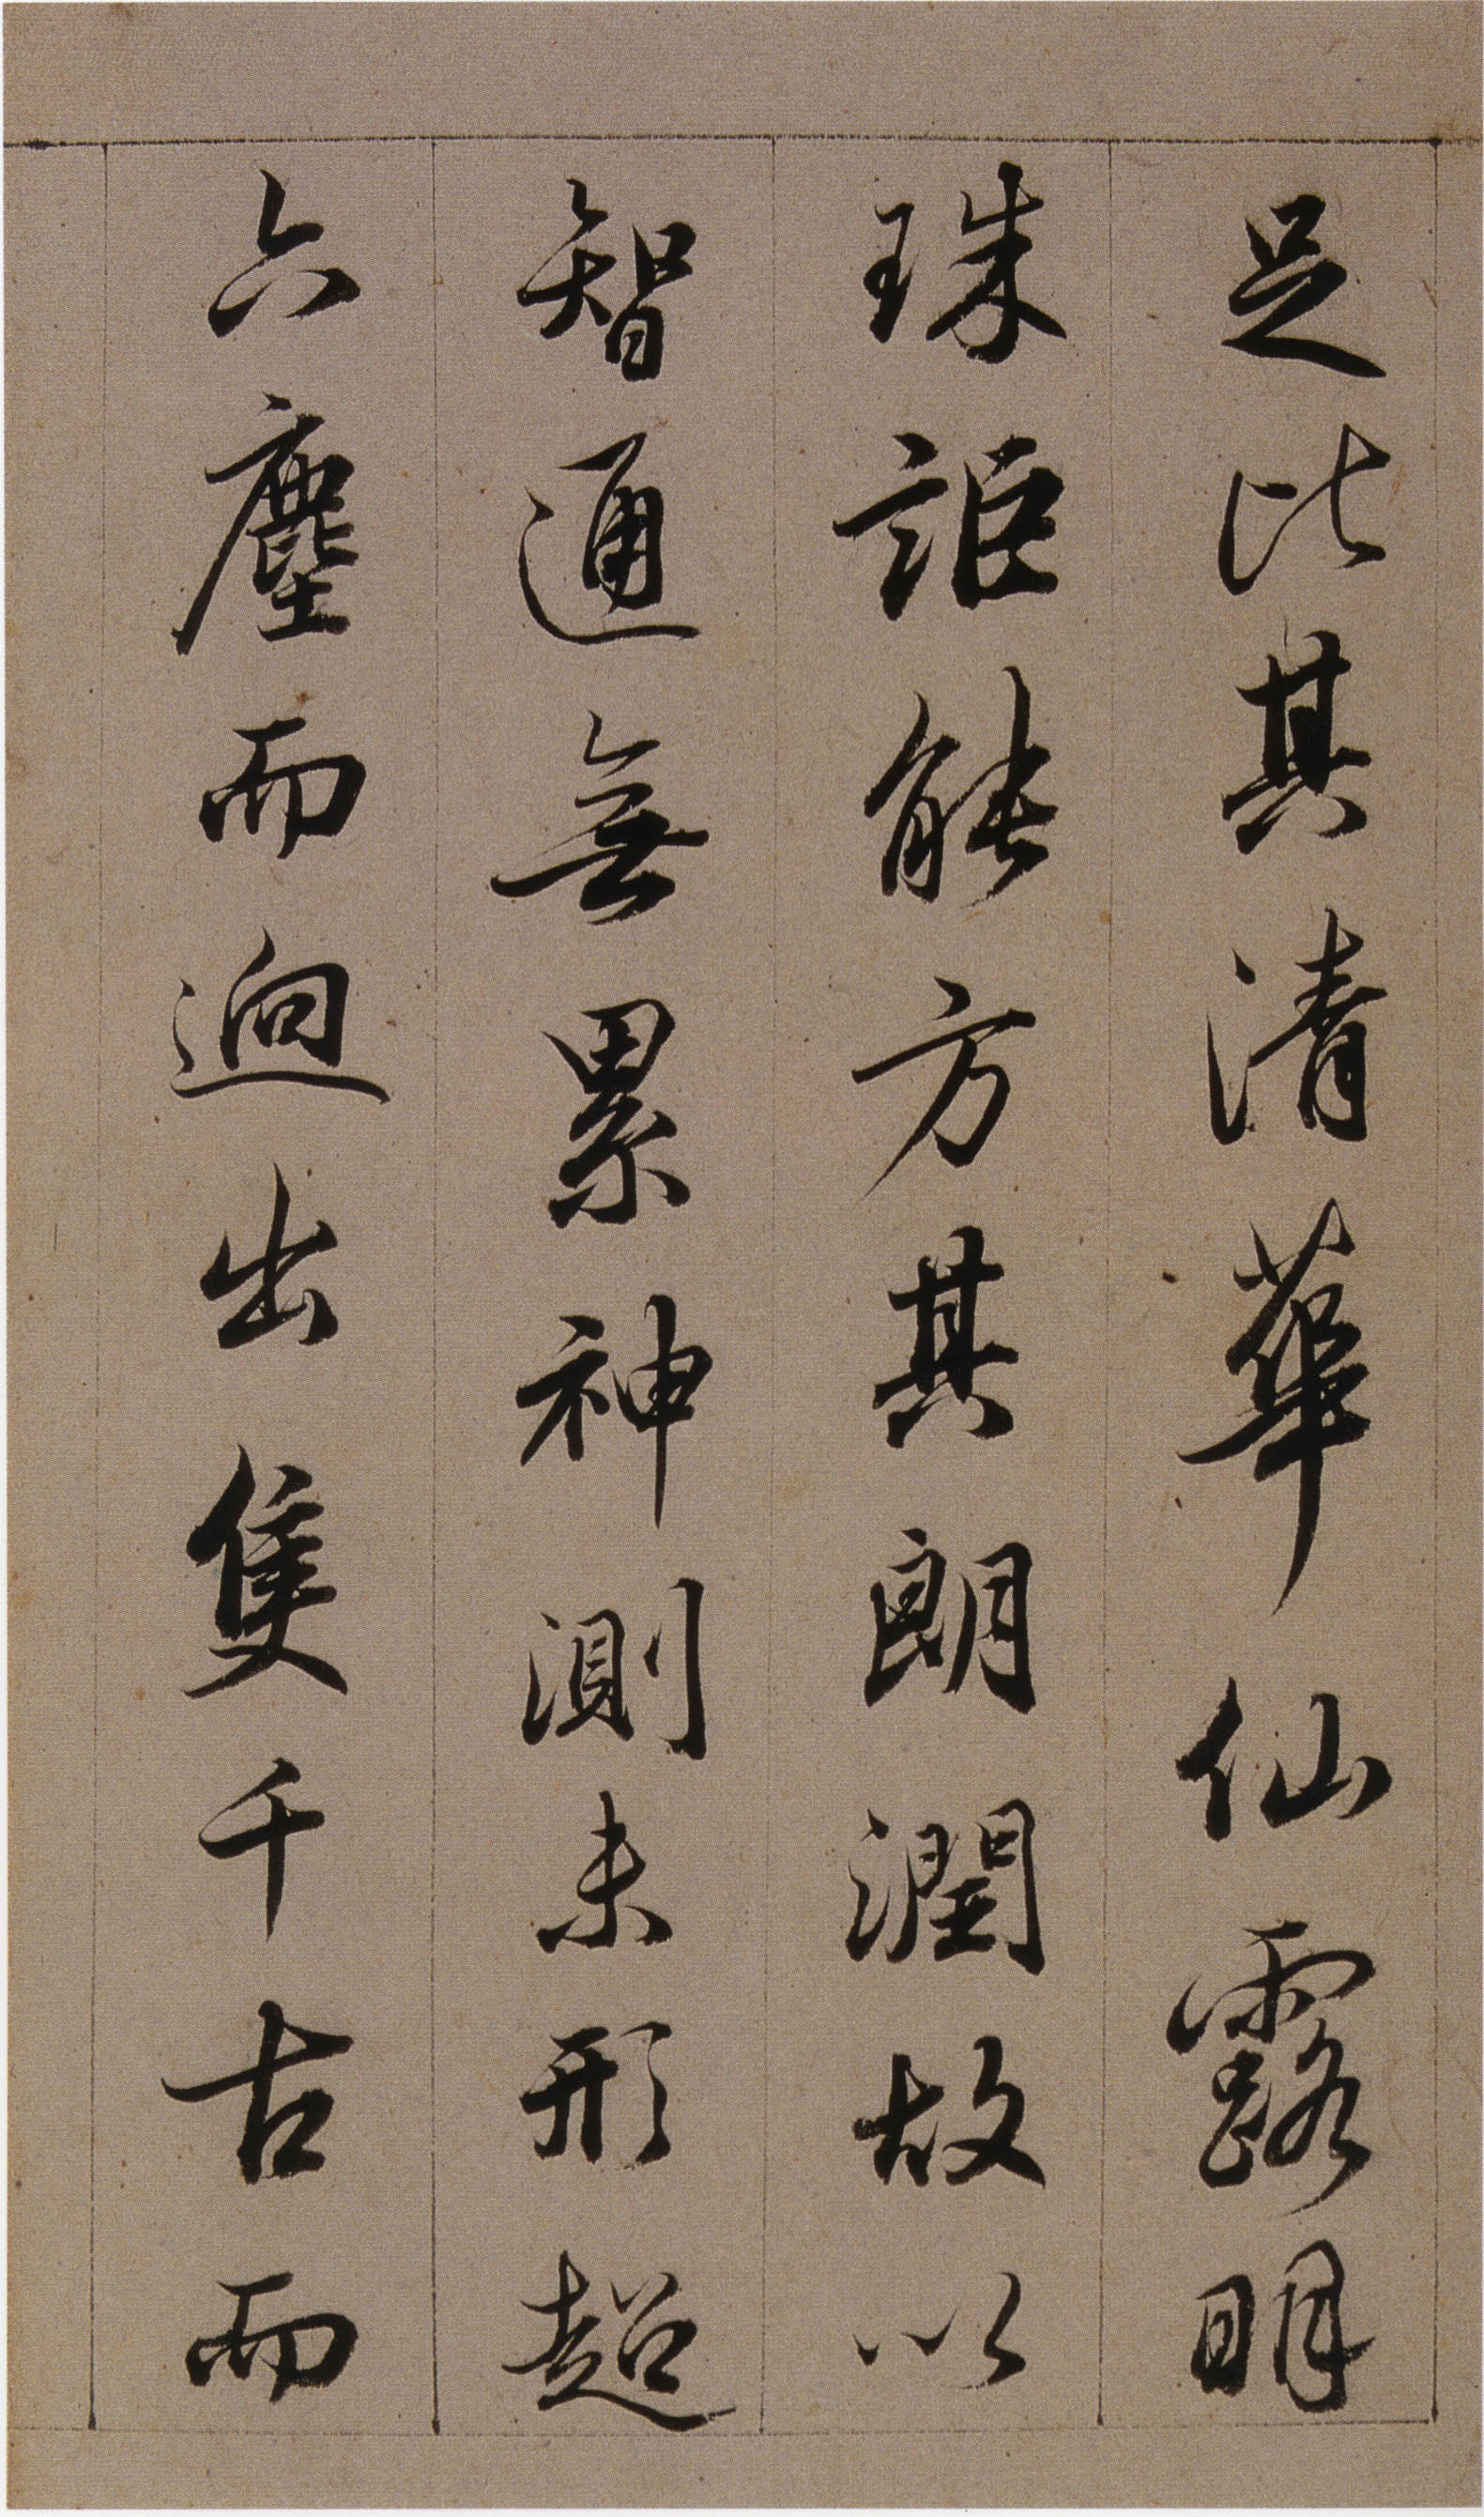 足比其清華仙露明
珠詎能方其朗潤故以
智通無累神測未形超
六塵而迥出隻千古而